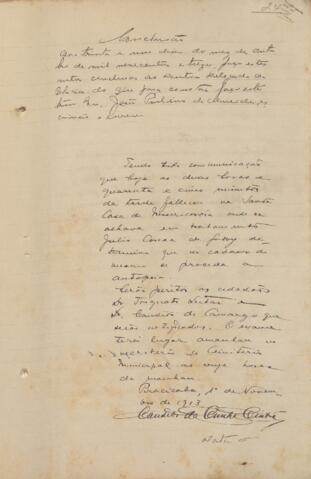 Conclusão
Aos trinta e um dias do mez de Outu-
bro de mil novecentos e treze, faço estes
autos conclusos ao Doutor Delegado de
Policia, do que para constar faço este
termo. Eu, João
crivão o escrevi.
Tendo tido communicação
que hoje as duas horas e
quarenta e cinco minutos
da tarde falleceu na Santa
Casa de Misericordia onde se
achava em tratamento
Julio Correa de Godoy de-
termino que no cadaver do
mesmo se proceda a
autopsia.
Serão peritos os cidadãos
Dr Torquato Leitão e
Dr. Candido de Camargo que
serão notificados. O exame
terá lugar amanhan no
necroterio do Cimiterio
Municipal as onze horas
da manhan.
Piracicaba, 1º de Novem-
bro de 1913.
Candido da Cunha Cintra
Data